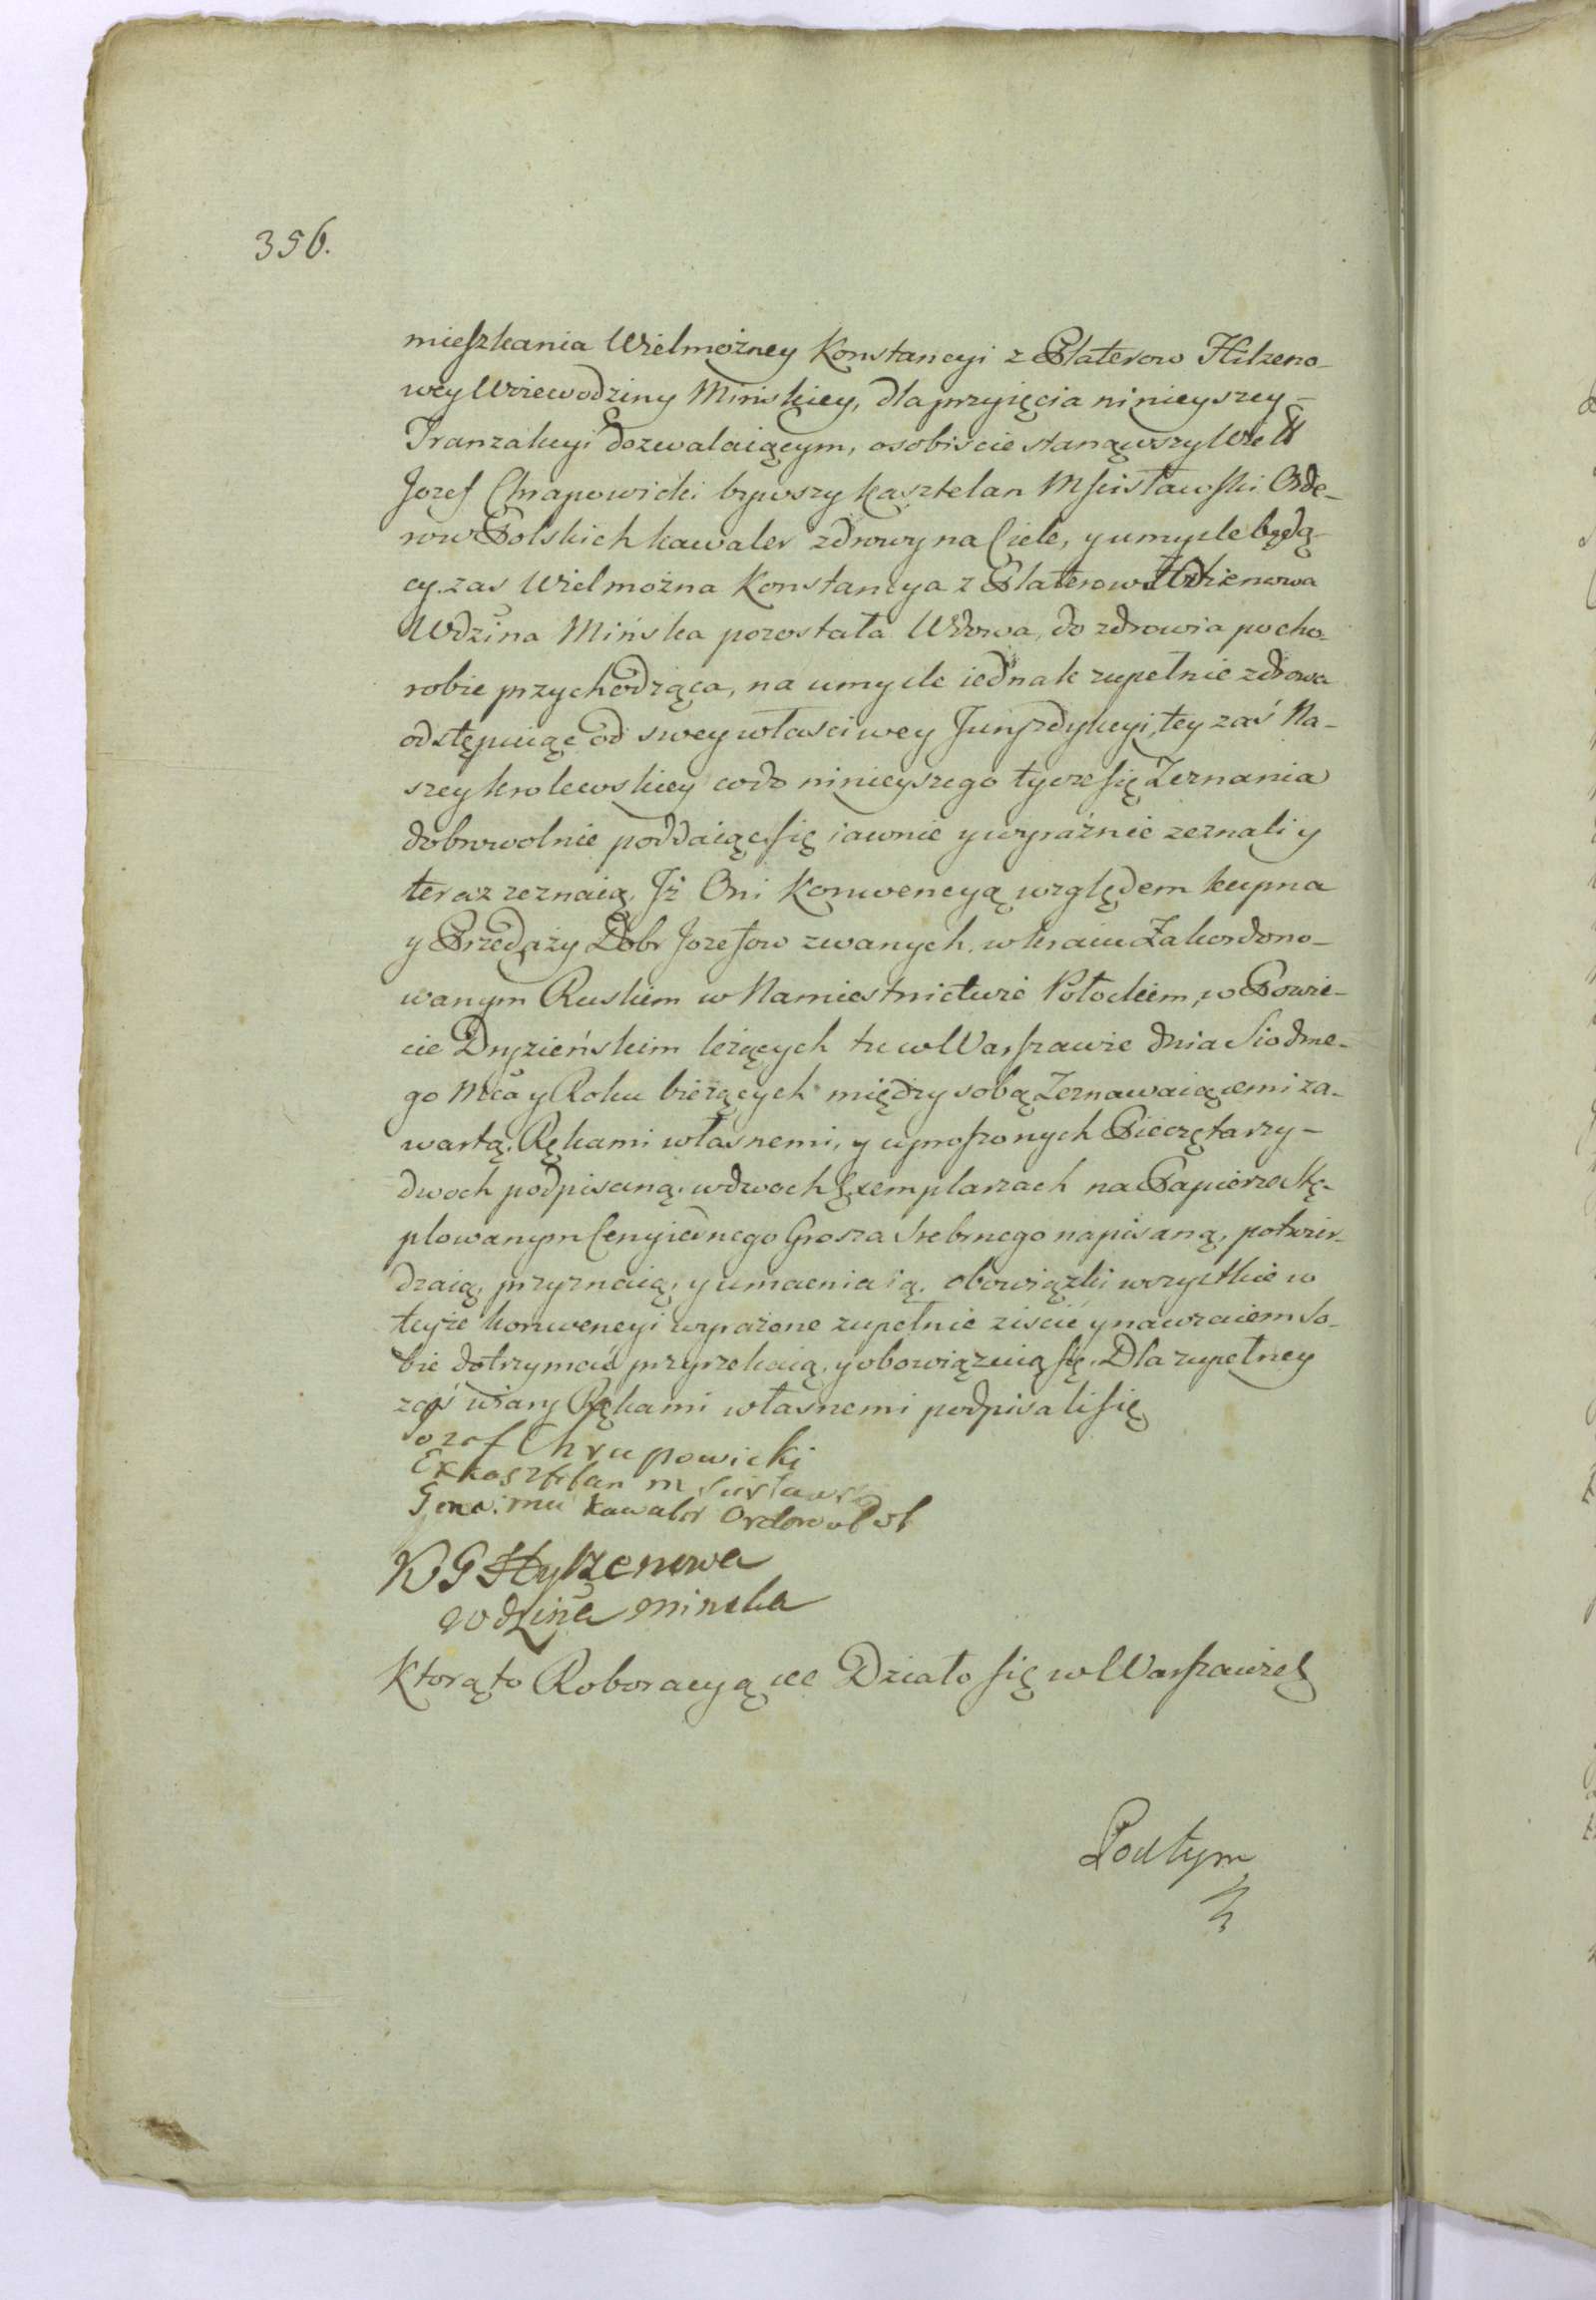 356.
mieszkania Wielmożney Konstancyi z Platerow Hilzeno-
wey Woiewodziny Minskiey, dla przyięcia ninieyszey-
Tranzakcyi dozwalaiącym, osobiscie stanąwszy Wie
Jozef Chrapowicki bywszy kasztelan Mscisławski Orde-
row Polskich kawaler zdrowy na Ciele, y umysle będą-
cy. zas Wielmożna Konstancya z Platerow Hilzenowa
Wdzina Mińska pozostała Wdowa, do zdrowia po cho-
robie przychodząca, na umysle iednak zupełnie zdrowa
odstępuiąc od swey własciwey Juryzdykcyi, tey zaś Na-
szey krolewskiey co do ninieyszego tycze się Zeznania
dobrowolnie poddaiąc się iawnie y wyraźnie zeznali y
teraz zeznaią, Jż Oni Konwencyą względem kupna
y Przedaży Dobr Jozefow zwanych, w kraiu Zakordono-
wanym Ruskim w Namiestnictwie Połockiem, w Powie-
cie Dryzieńskim leżących tu w Warszawie dnia Siodme-
go Mca y Roku bieżących między sobą Zeznawaiącemi za-
wartą, Rękami własnemi, y uproszonych Pieczętarzy-
dwoch podpisaną, w dwoch Exemplarzach na Papierze stę-
plowanym Ceny iednego Grosza srebrnego napisaną, potwier-
dzaią, przyznaią, y umacniaią, obowiązki wszystkie w
teyże konwencyi wyrażone zupełnie ziscić y nawzaiem so-
bie dotrzymać przyrzekaią, y obowiązuią się. Dla zupełney
zaś wiary Rękami własnemi podpisali się
Jozef Chrapowicki
Exkasztelan Mscisławs
kawaler Orderow Pol
KG Hylzenowa
wdzina minska
Ktorąto Roboracyą cc Działo się w Warszawie
Podtym